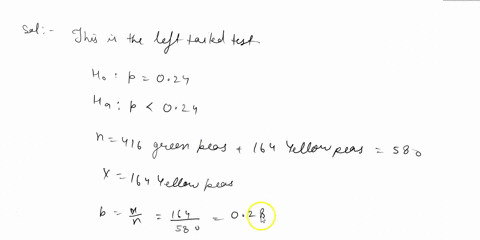 Sol:- This is the left tailed test
H₀: p = 0.24
Hₐ: p < 0.24
n = 416 green peas + 164 Yellow peas = 580
X = 164 Yellow peas
p = x/n = 164/580 = 0.28